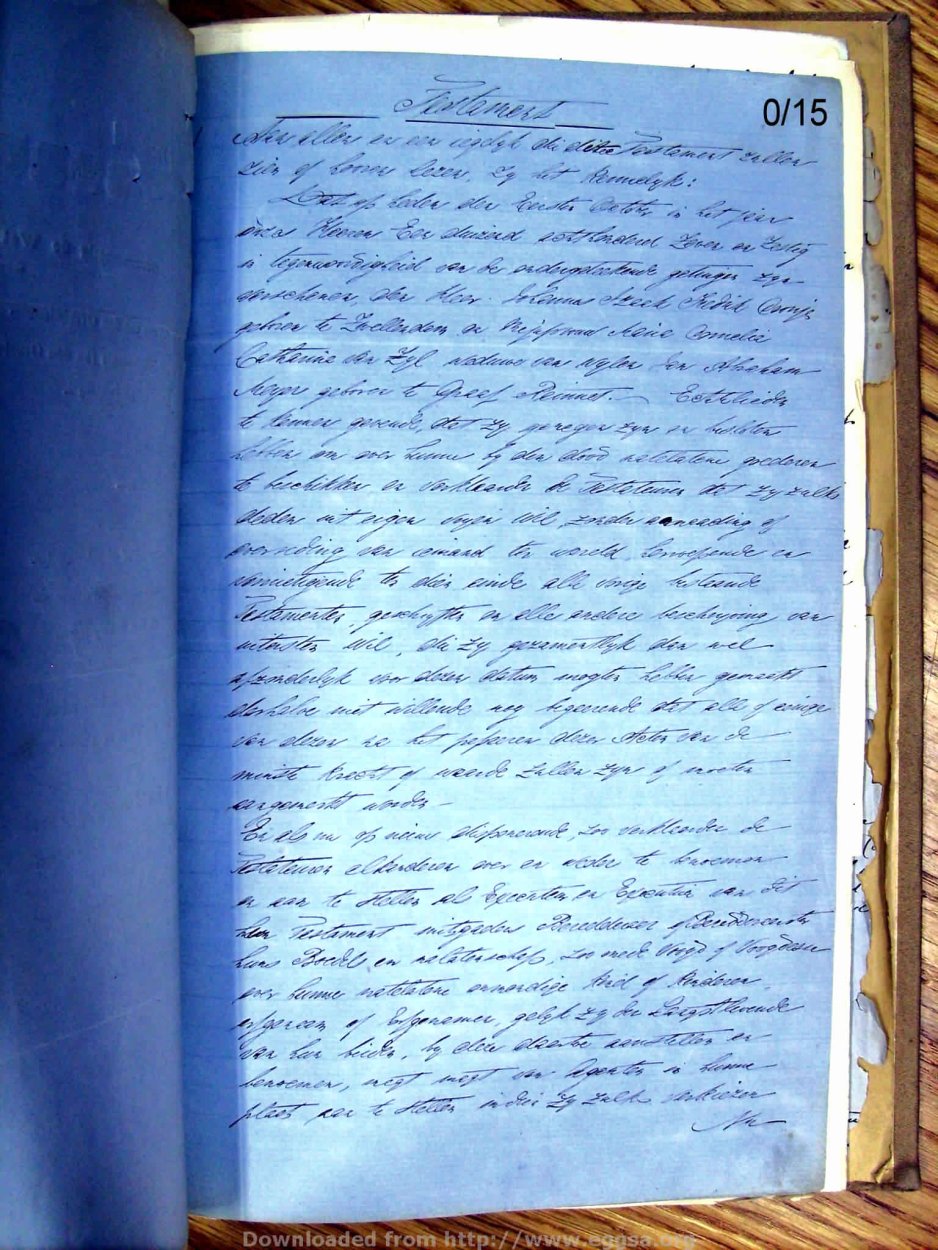 Testament
0/15
Aan allen en een iegelyk die deze Testament zullen
zien of hooren lezen, Zy het kennelyk:
Dat op heden den Eersten October in het jaar
onzes Heeren Een duizend achthonderd Zeven en Zestig
in tegenwoordigheid van de ondergeteekende getuigen zyn
verschenen, den Heer Johannes Izaak
geboren te Zwellendam en Mejufvrouw Maria Cornelia
Catharina van Zyl weduwe van wylen den Abraham
Meyer geboren te Graaf Reinnet. Echtelieden
te kennen gevende, dat zy genegen zyn en besloten
hebben om over hunne by den dood natelatene goederen
te beschikken en verklaarden de Testateuren dat zy zulks
deden uit eigen vryen wil zonder aanrading of
overreding van iemand ter wereld, herroepende en
vernietigende ten dien einde alle vorige bestaande
Testamenten, geschriften en alle andere beschryving van
uitersten wil, die zy gezamentlyk dan wel
afzonderlyk voor dezen datum mogten hebben gemaakt
derhalve niet willende nog begeerende dat alle of eenige
van dezen na het passeren dezer Acten van de
minste kracht of waarde zullen zyn of moeten
aangemerkt worden –
En als nu op nieuw disponerende, zoo verklaarden de
Testateuren elkanderen over en weder te benoemen
en aan te stellen als Executeur en Executrice van dit
hun Testament mitsgaders Beredderaar of
huns Boedels en nalatenschap, zoo mede Voogd of Voogdesse
over hunne natelatene onmondige Kind of Kinderen,
erfgenaam of Erfgenamen, gelyk zy den Langstlevende
van hun beiden, by deze daartoe aanstellen en
benoemen, met magt om Agenten in hunne
plaats aan te stellen indien zy zulks verkiezen
Downloaded from http://www.eggsa.org